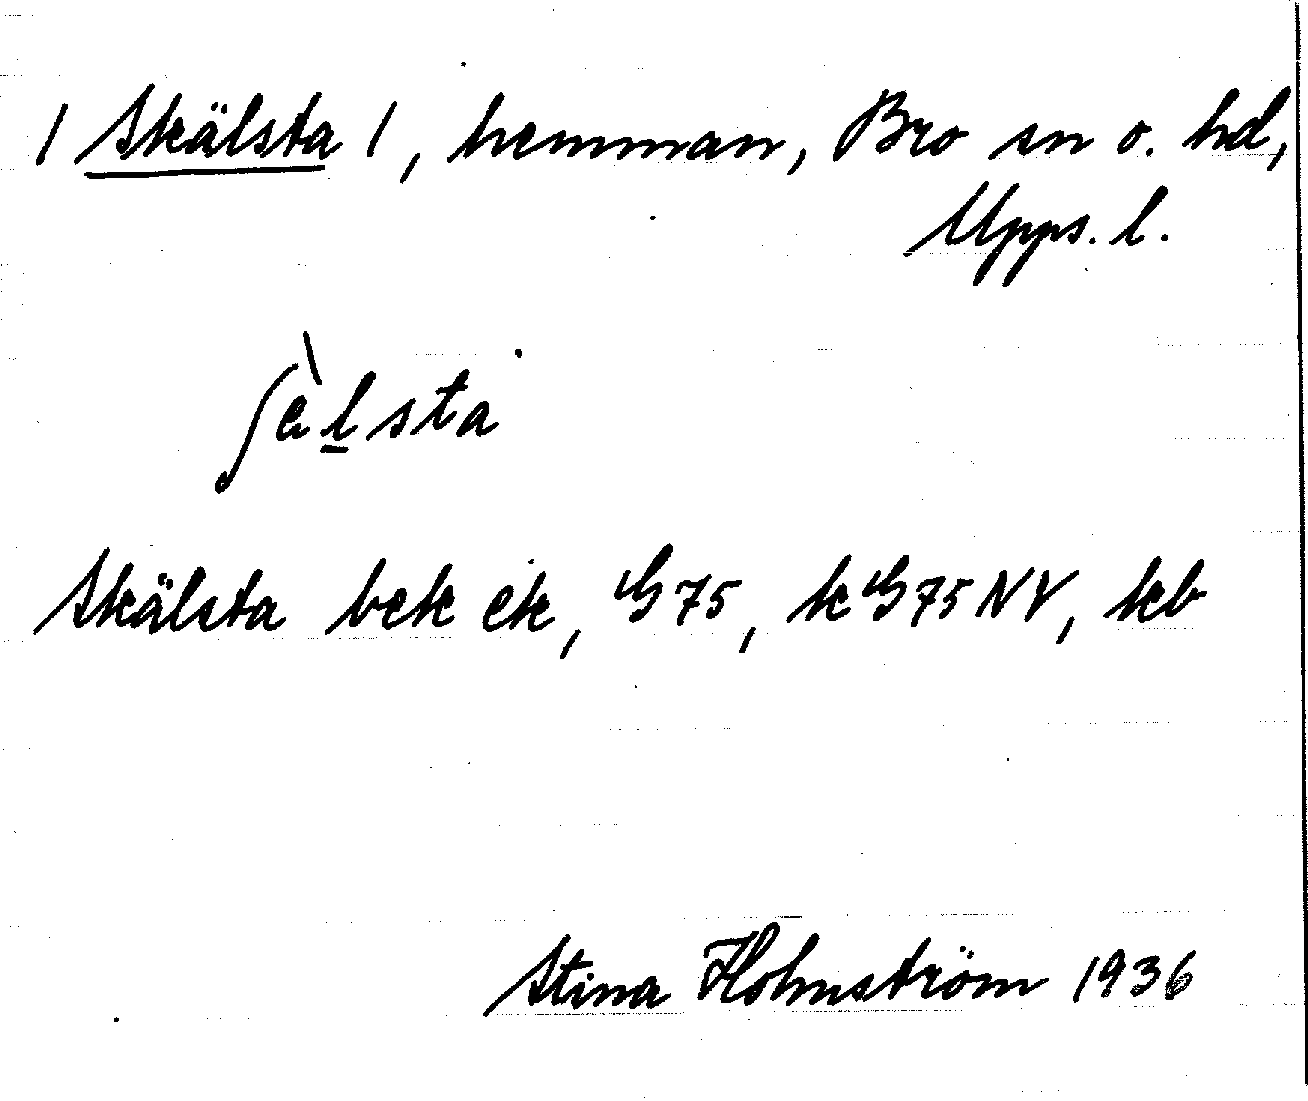 / Skälsta /, hemman, Bro sn o. hd,
Upps. l.
ʃὲlsta
Skälsta bek ek, G 75, kG 75 NV, kb
Stina Holmström 1936